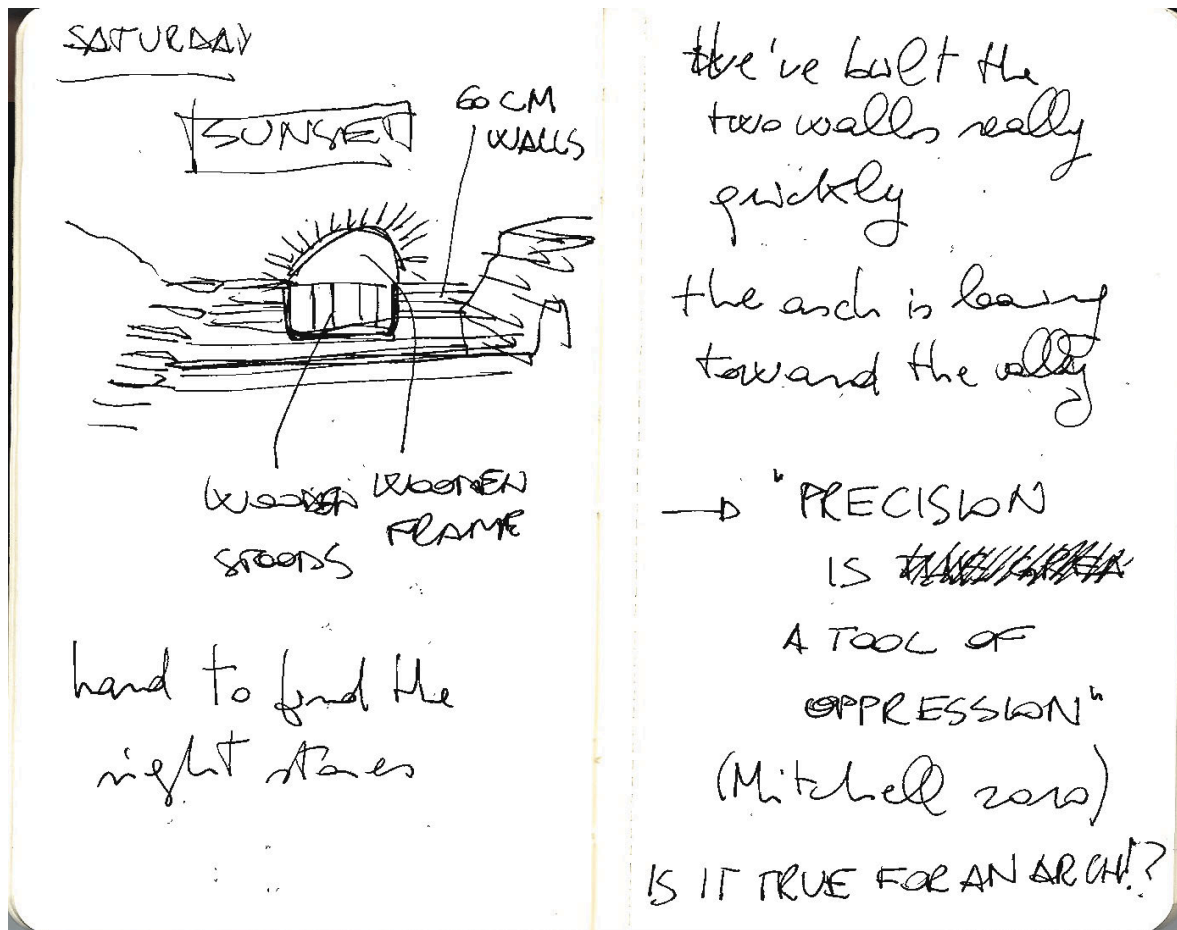 SATURDAY
SUNSET
60 CM
WALLS
WOODEN
STOODS
WOODEN
FRAME
hard to find the
right stones
We've built the
two walls really
quickly
the arch is leaning
toward the valley
"PRECISION
IS
A TOOL OF
OPPRESSION"
(Mitchell 2010)
IS IT TRUE FOR AN ARCH!?